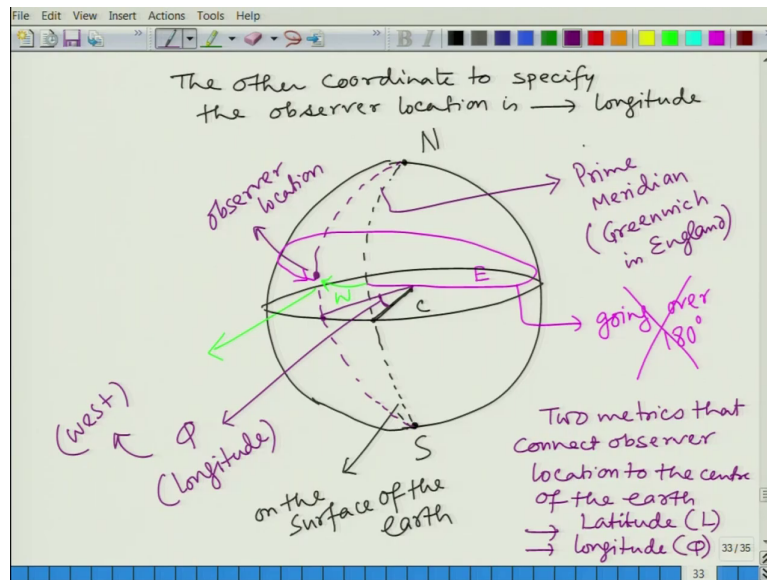 File Edit View Insert Actions Tools Help
B I
The other coordinate to specify
the observer location is → longitude
N
observer
location
Prime
Meridian
(Greenwich
in England)
E
W
C
going over
180°
(west)
φ
(longitude)
S
on the
surface of the
earth
Two metrics that
connect observer
location to the centre
of the earth
→ Latitude (L)
→ longitude (φ)
33/35
33